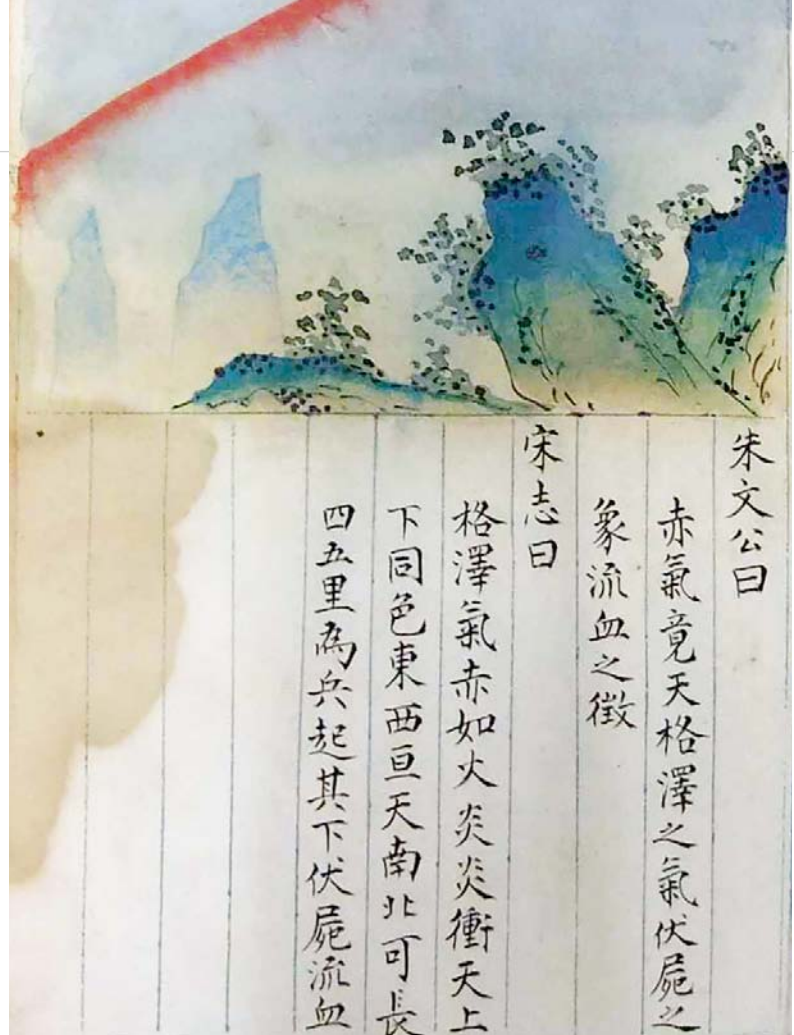 朱文公曰
赤氣竟天格澤之氣伏屍之
象流血之徵
宋志曰
格澤氣赤如火炎炎衝天上
下同色東西亘天南北可長
四五里為兵起其下伏屍流血